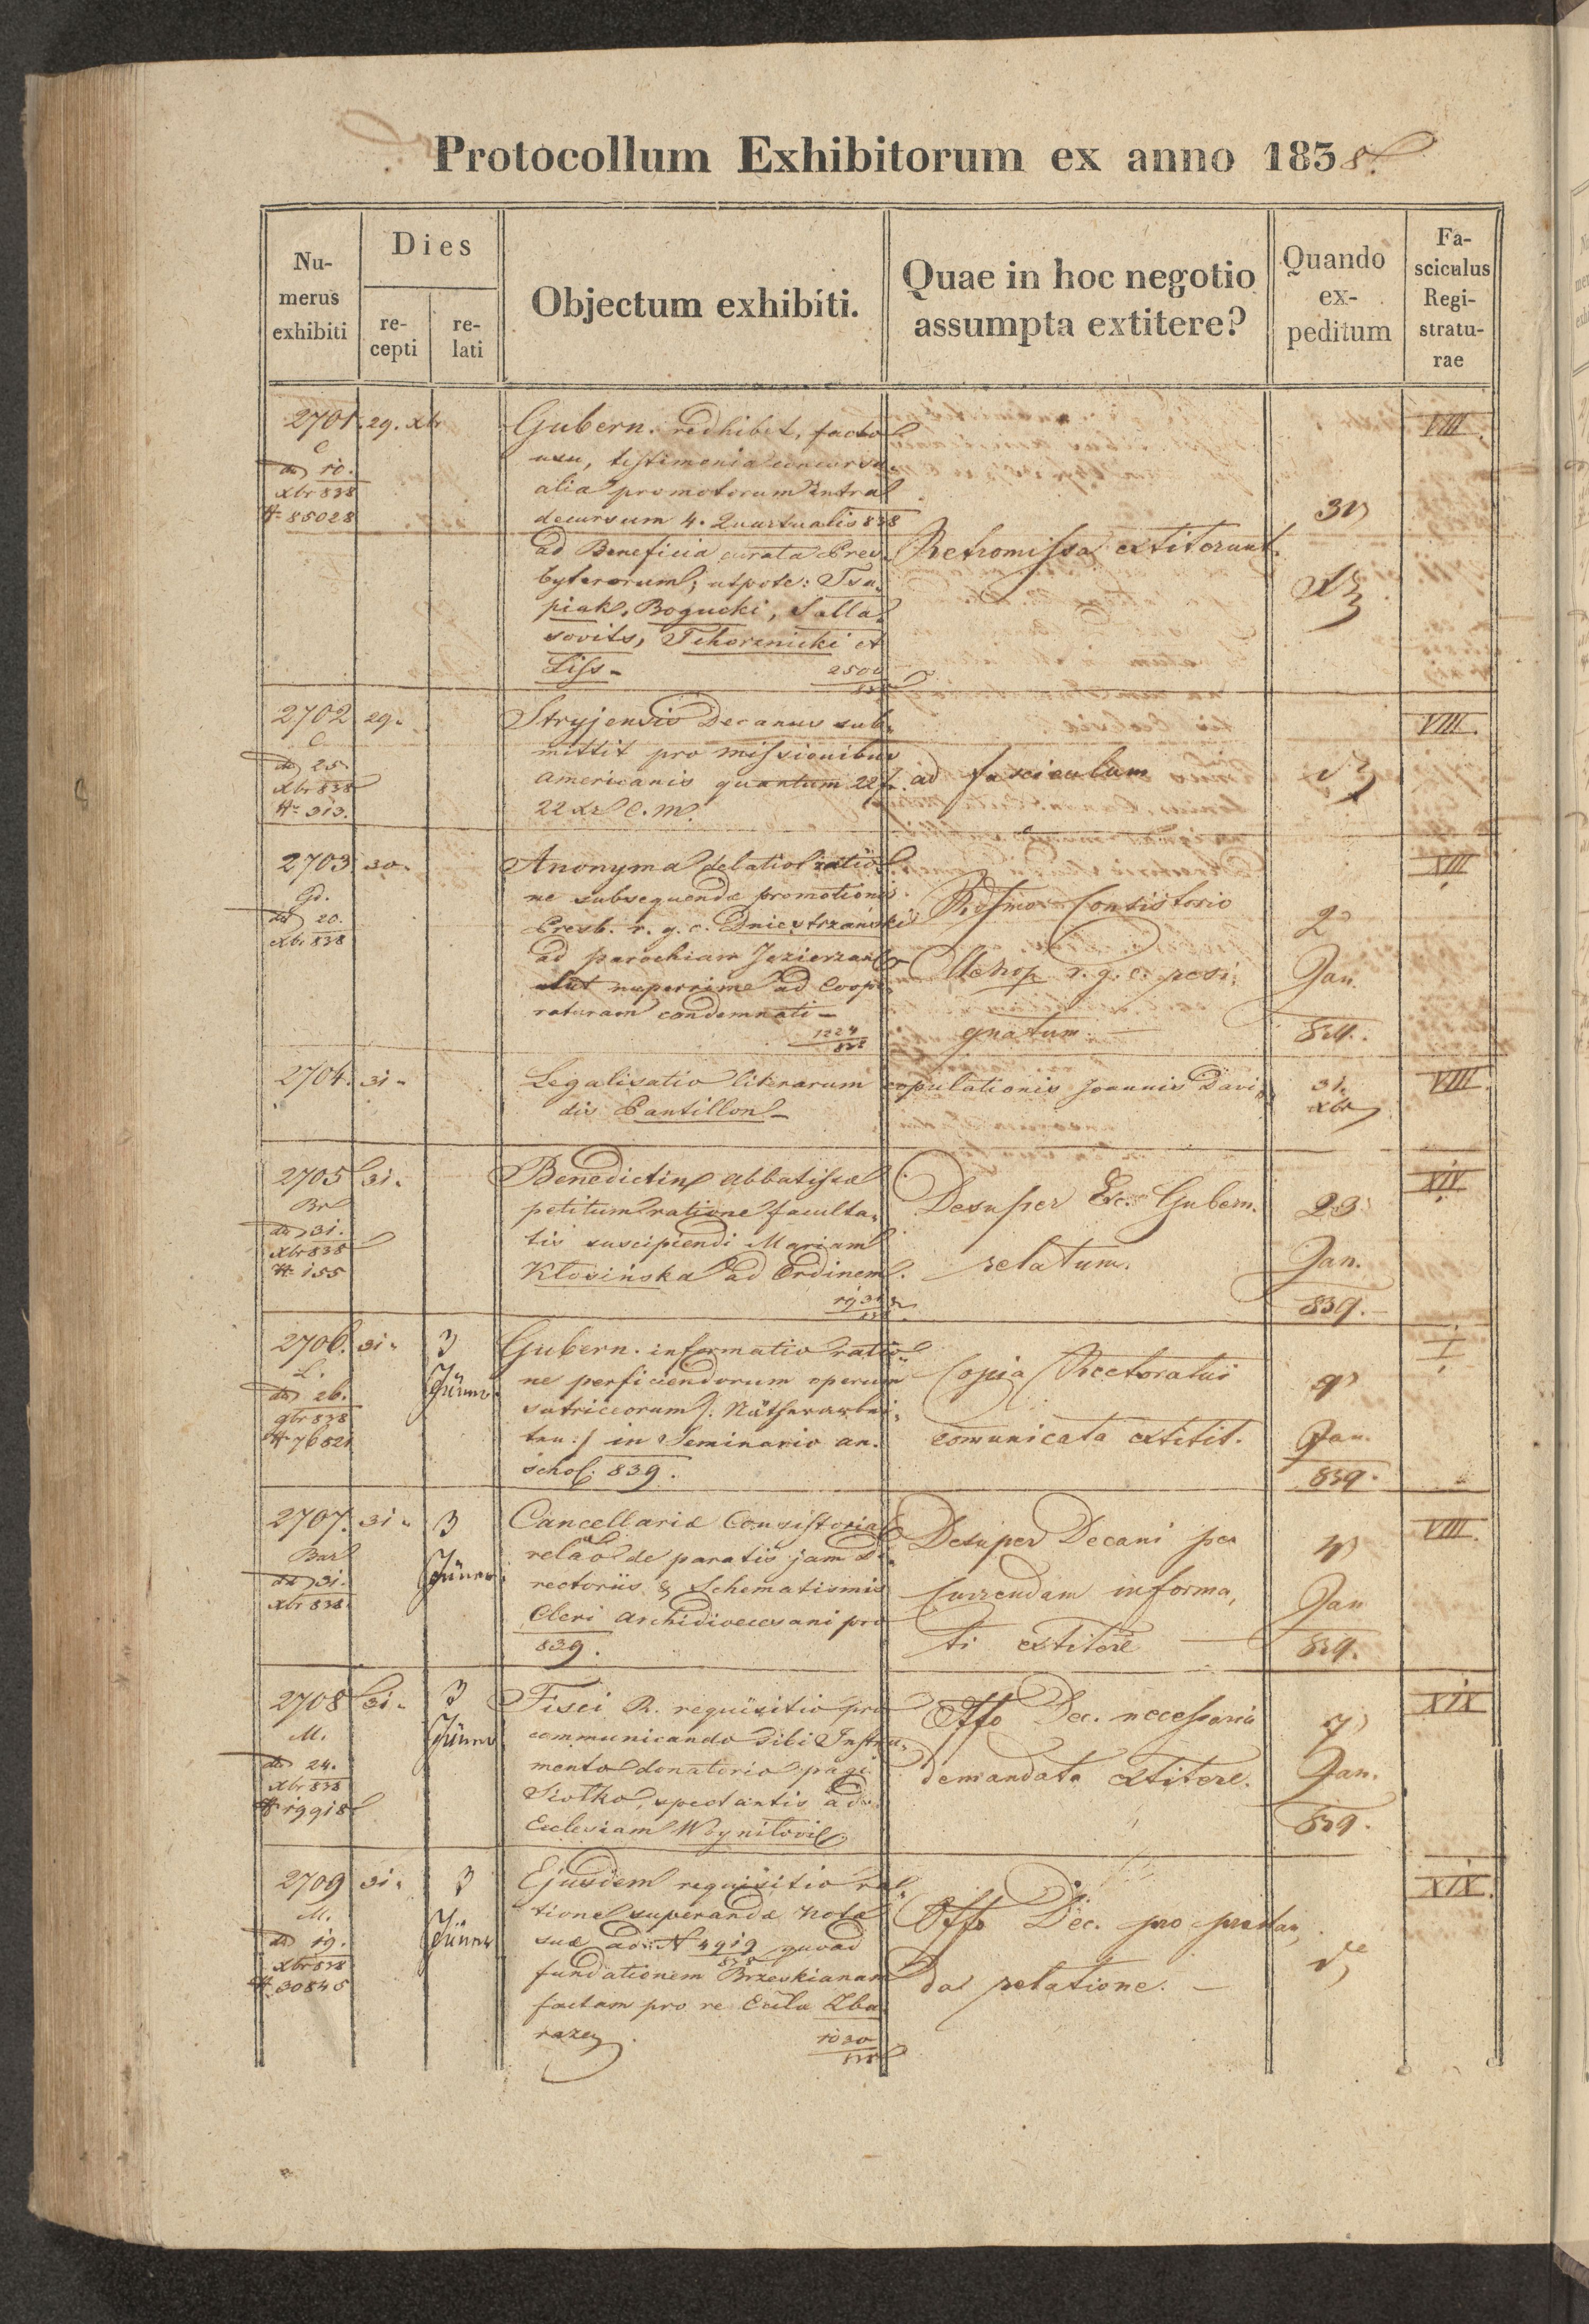 Protocollum Exhibitorum ex anno 1838.
Nu-
merus
exhibiti
Dies
re-
cepti
re-
lati
Objectum exhibiti.
Quae in hoc negotio
assumpta extitere?
Quando
ex-
peditum
Fa-
sciculus
Regi-
stratu-
rae
2701. 29. Xbr
C
dto 10.
Xbr 838
# 85028
Gubern. redhibet, facto
usu, testimonia concurs
alia promotorum intra
decursum 4. Quartualis 838
ad Beneficia curata Pres-
byterorum, utpote:
piak, Bogucki, Salla-
sovits, Tchorznicki et
Liss -
2500
838
Retromissa extiterunt.
31
VIII.
2702 29.
C.
dto 25.
Xbr 838
# 313.
Stryjensis Decanus sub-
mittit pro missionibus
americanis quantum 22 f.
22 Xr C. M.
ad fasciculum
VIII.
2703. 30.
Gd.
dto 20.
Xbr 838
Anonyma delatio ratio-
ne subsequendae promotionis
Presb. r. g. c. Dniestrzański
ad parochiam
nuperrime ad Coope-
raturam condemnati -
1224
838
Consistorio
r. g. c.
gnatum. -
2
Jan.
839.
XIII
2704. 31.
Legalisatio literarum copulationis Joannis Davi-
dis Pantillon -
31.
Xbr
VIII.
2705 31.
Br
dto 31.
Xbr 838
# 155
Benedictin abbatissae
petitum ratione faculta-
tis suscipiendi Mariam
Kłosińska ad Ordinem.
Desuper Exc. Gubern.
relatum.
23
Jan.
839. -
XIV
2706. 31.
L.
dto 26.
9br 838
# 76521
3
Jänner
Gubern. informatio ratio-
ne perficiendorum operum
sutriceorum /: Nätherarbei-
ten :/ in Seminario an.
schol. 839.
Copia Rectoratui
comunicata extitit.
9
Jan.
839.
I
2707. 31.
Bar
dto 31.
Xbr 838.
3
Jänner
Cancellariae Consistorial
relao de paratis jam di-
rectoriis & Schematismis
Cleri archidioecesani pro
839.
Desuper Decani per
Currendam informa,
ti extitere -
4
Jan
839.
VIII.
2708 31.
M.
dto 24.
Xbr 838
# 19918
3
Jänner
Fisci R. requisitio pro
communicando sibi Instru-
mento donatorio pagi
Siołko, spectantis ad
Ecclesiam Woynilovi
Offo Dec. necessaria
demandata extitere.
7
Jan.
839.
XIX
2709 31.
M.
dto 19.
Xbr 838
# 30845
3
Jänner
Ejusdem requisitio ra-
tione superandae notae
suae ad N 4919 quoad
838
fundationem Brzeskianam
factam pro re Eccla Zba-
razen.
1030
838
Offo Dec. pro praestan,
da relatione. -
XIX.